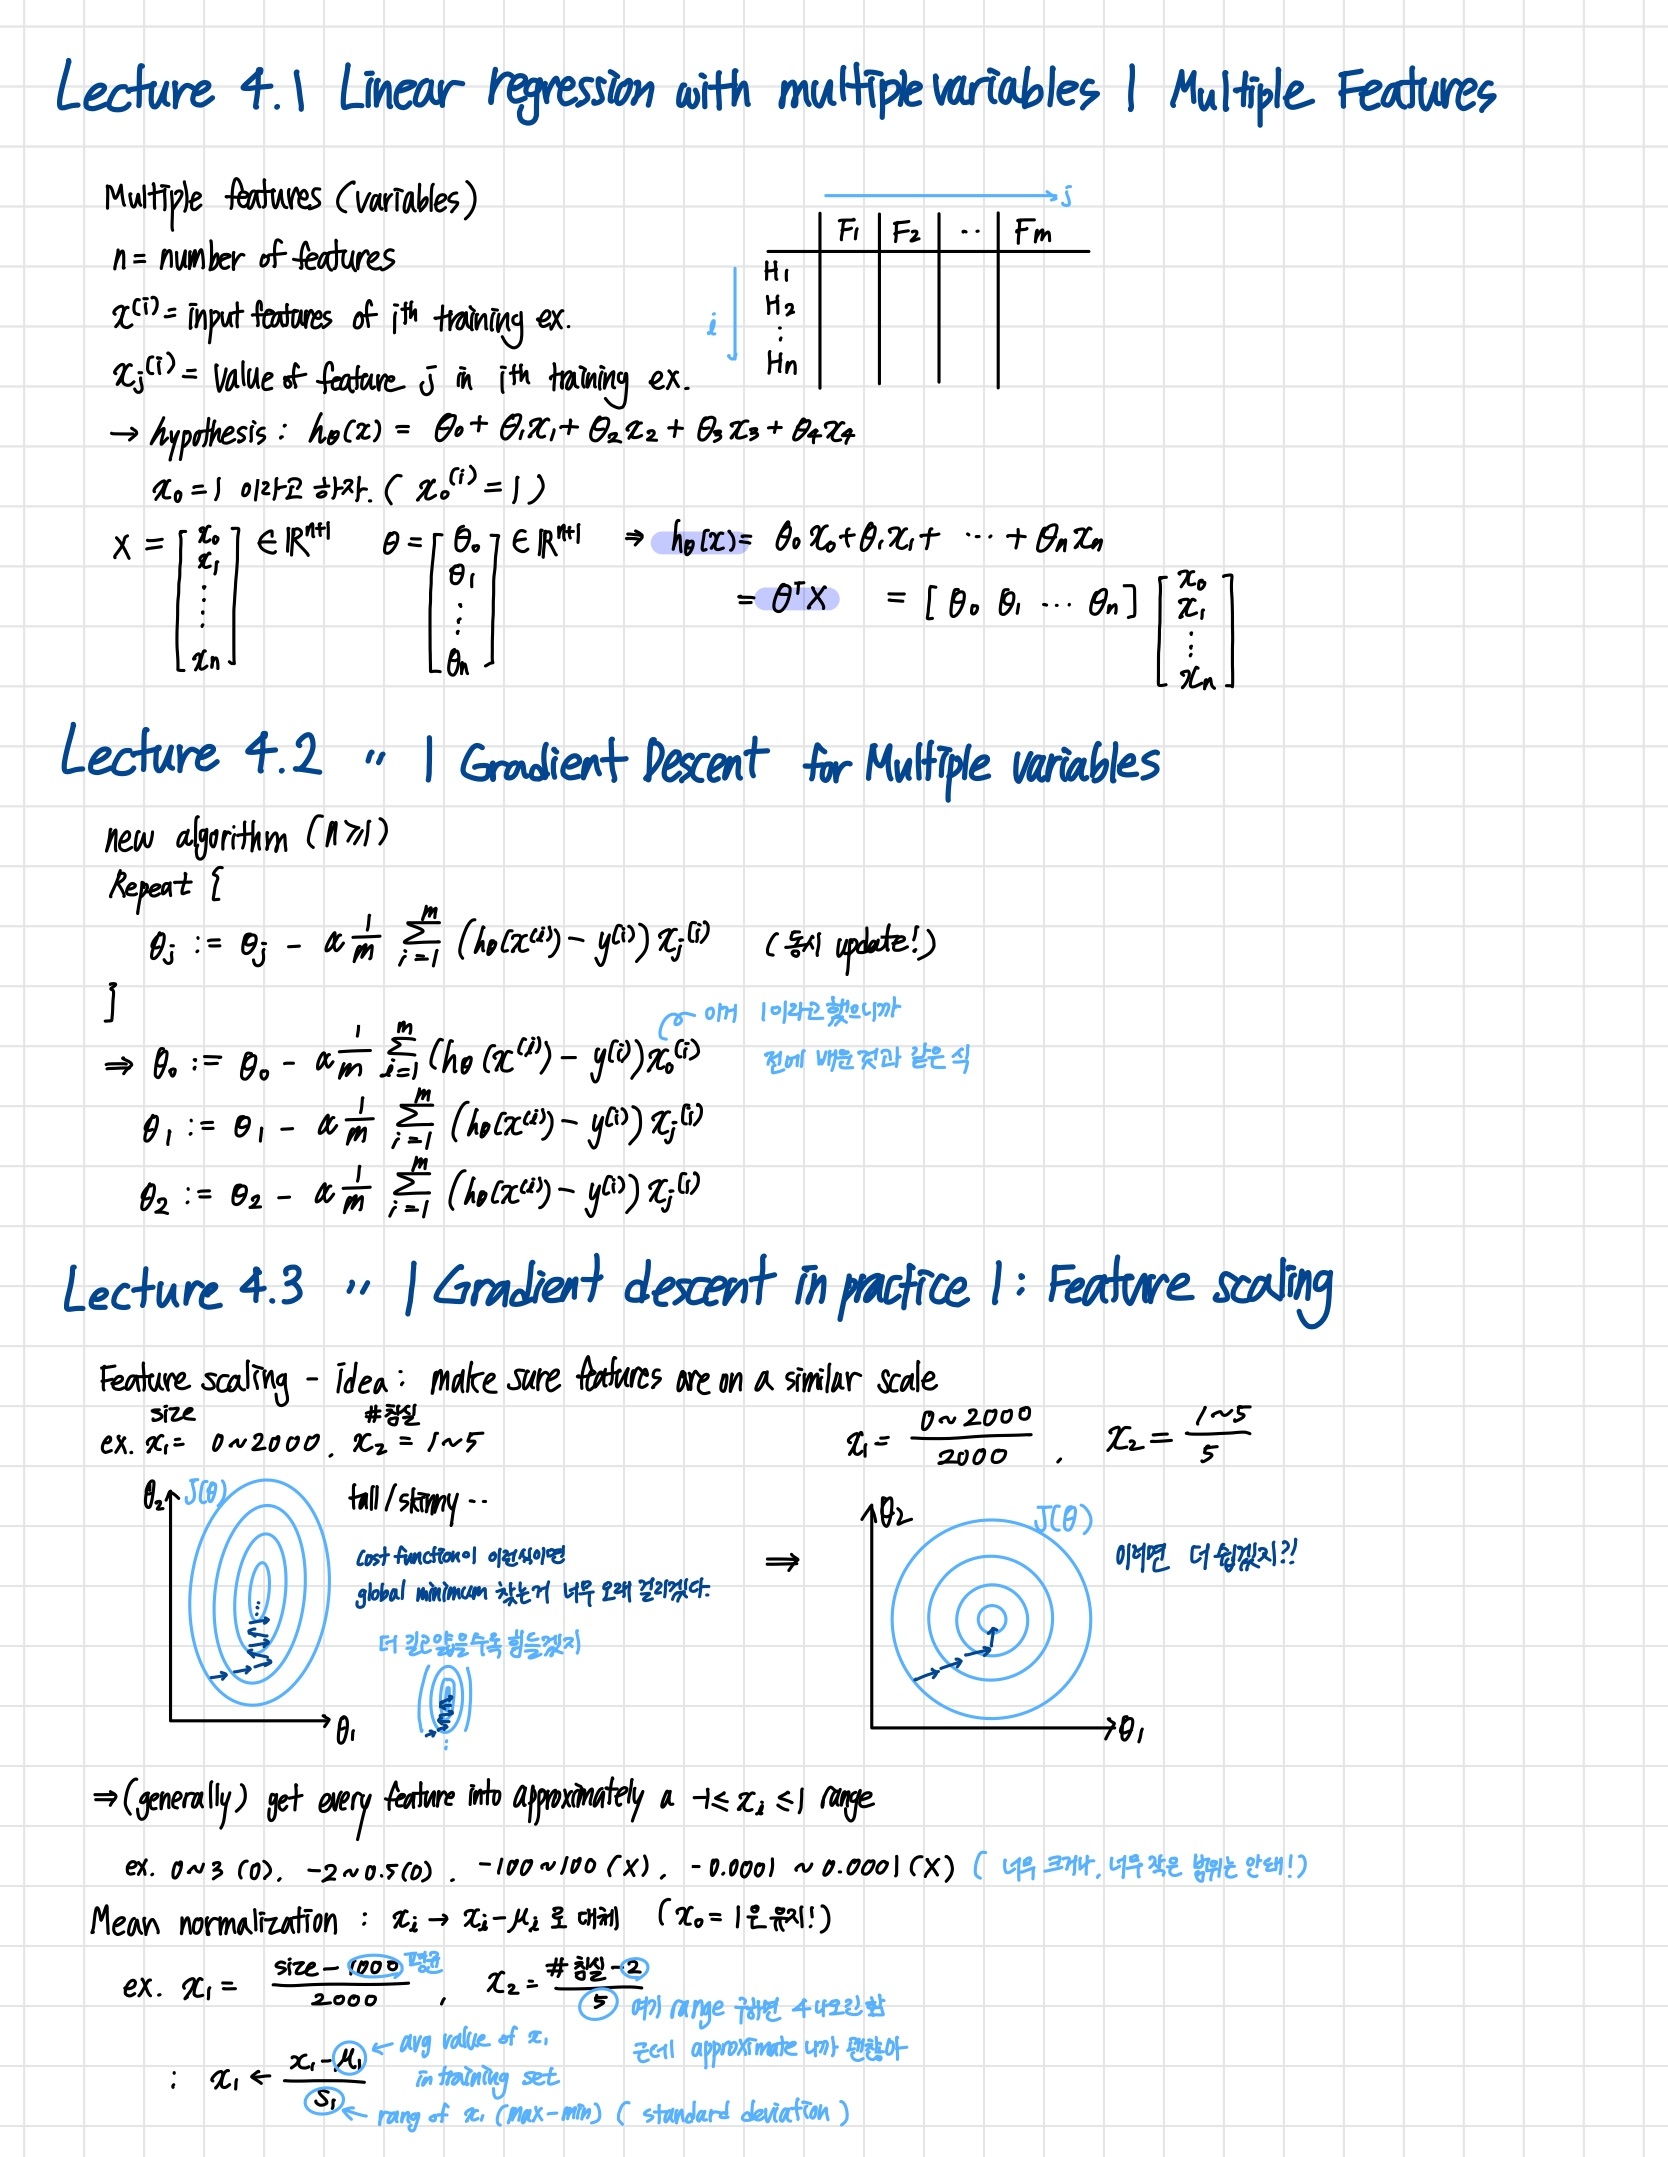 Lecture 4.1 Linear regression with multiple variables | Multiple Features
Multiple features (variables)
n = number of features
x^(i) = input features of i^th training ex.
x_j^(i) = value of feature j in i^th training ex.
j
F₁ F₂ ·· Fm
i
H₁
H₂
⋮
Hn
→ hypothesis : h_θ(x) = θ₀ + θ₁x₁ + θ₂x₂ + θ₃x₃ + θ₄x₄
x₀ = 1 이라고 하자. ( x₀^(i) = 1 )
X = [ x₀ x₁ ⋮ xn ] ∈ ℝ^(n+1) θ = [ θ₀ θ₁ ⋮ θn ] ∈ ℝ^(n+1) ⇒ h_θ(x) = θ₀x₀ + θ₁x₁ + ··· + θn xn
= θ^T X = [ θ₀ θ₁ ··· θn ] [ x₀ x₁ ⋮ xn ]
Lecture 4.2 〃 | Gradient Descent for Multiple variables
new algorithm (n ≥ 1)
Repeat {
θj := θj - α 1/m Σ_{i=1}^{m} (h_θ(x^(i)) - y^(i)) x_j^(i) (동시 update!)
}
이거 1이라고 했으니까
전에 배운 것과 같은 식
⇒ θ₀ := θ₀ - α 1/m Σ_{i=1}^{m} (h_θ(x^(i)) - y^(i)) x₀^(i)
θ₁ := θ₁ - α 1/m Σ_{i=1}^{m} (h_θ(x^(i)) - y^(i)) x_j^(i)
θ₂ := θ₂ - α 1/m Σ_{i=1}^{m} (h_θ(x^(i)) - y^(i)) x_j^(i)
Lecture 4.3 〃 | Gradient descent in practice 1 : Feature scaling
Feature scaling - idea : make sure features are on a similar scale
size #침실
ex. x₁ = 0~2000, x₂ = 1~5
x₁ = 0~2000 / 2000 , x₂ = 1~5 / 5
θ₂ J(θ)
θ₁
tall/skinny ··
cost function이 이런식이면
global minimum 찾는거 너무 오래 걸리겠다.
더 길고 얇을수록 힘들겠지
⇒
θ₂
J(θ)
θ₁
이러면 더 쉽겠지?!
⇒ (generally) get every feature into approximately a -1 ≤ x_i ≤ 1 range
ex. 0~3 (O), -2~0.5 (O), -100~100 (X), -0.0001 ~ 0.0001 (X) ( 너무 크거나, 너무 작은 범위는 안돼!)
Mean normalization : x_i → x_i - μ_i 로 대체 (x₀ = 1은 유지!)
ex. x₁ = size - 1000 / 2000 , x₂ = #침실 - 2 / 5
평균
여기 range 구하면 4 나오긴 함
근데 approximate 니까 괜찮아
: x₁ ← x₁ - μ₁ / S₁
← avg value of x₁
in training set
← rang of x₁ (max-min) ( standard deviation )